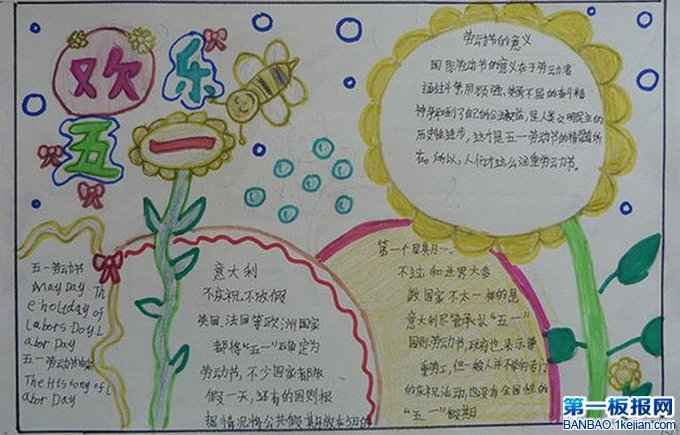 欢乐
五一
劳动节的意义
国际劳动节的意义在于劳动者
通过斗争,用顽强、英勇不屈的奋斗精
神争取到了自己的合法权益,是人类文明民主的
历史性进步,这才是五一劳动节的精髓所
在。所以,人们才这么注重劳动节。
五一劳动节
May Day Th
e holiday of
Labors Day L
abor Day
五一劳动节
The History of L
abor Day
意大利
不庆祝不放假
英国、法国等欧洲国家
都将“五一”确定为
劳动节,不少国家都放
假一天,还有的国则根
据情况将公共假期放在5月的
第一个星期一。
不过,和世界大多
数国家不太一样的是
意大利尽管承认“五一”
国际劳动节,政府也表示尊
重劳工,但一般人并不举行专门
的庆祝活动,也没有全国性的
“五一”假期
第一板报网
BANBAO.1kejian.com